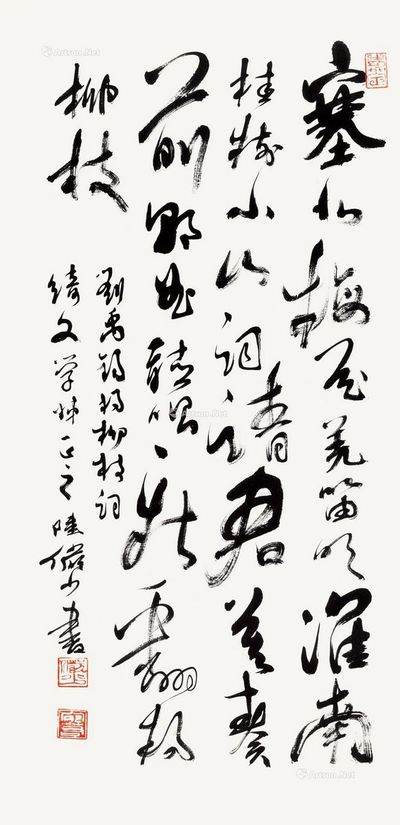 塞北梅花羌笛吹淮南
桂树小山词请君莫奏
前朝曲听唱新翻杨
柳枝
刘禹锡杨柳枝词
绮文学妹正之 陆俨少书
Artron.Net
Artron.Net
Artron.Net